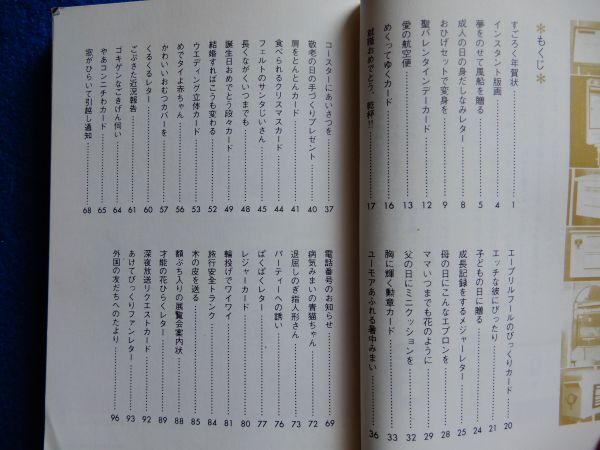 ＊もくじ＊
すごろく年賀状……1
インスタント版画……4
夢をのせて風船を贈る……5
成人の日の身だしなみレター……8
おひげセットで変身を……9
聖バレンタインデーカード……12
愛の航空便……13
めくってゆくカード……16
就職おめでとう、乾杯!!……17
エープリルフールのびっくりカード……20
エッチな彼にぴったり……21
子どもの日に贈る……24
成長記録をするメジャーレター……25
母の日にこんなエプロンを……28
ママいつまでも花のように……29
父の日にミニクッションを……32
胸に輝く勲章カード……33
ユーモアあふれる暑中みまい……36
コースターにあいさつを……37
敬老の日の手づくりプレゼント……40
肩をとんとんカード……41
食べられるクリスマスカード……44
フェルトのサンタじいさん……45
長くながくいつまでも……48
誕生日おめでとう段々カード……49
結婚すればこうも変わる……52
ウエディング立体カード……53
めでタイよ赤ちゃん……56
かわいいおむつカバーを……57
くるくるレター……60
ごぶさた近況報告……61
ゴキゲンなごきげん伺い……64
やあコンニチわカード……65
窓がひらいて引越し通知……68
電話番号のお知らせ……69
病気みまいの青猫ちゃん……72
退屈しのぎ指人形さん……73
パーティーへの誘い……76
ぱくぱくレター……77
レジャーカード……80
輪投げでワイワイ……81
旅行安全トランク……84
木の皮を送る……85
額ぶち入りの展覧会案内状……88
才能の花ひらくレター……89
深夜放送リクエストカード……92
あけてびっくりファンレター……93
外国の友だちへのたより……96